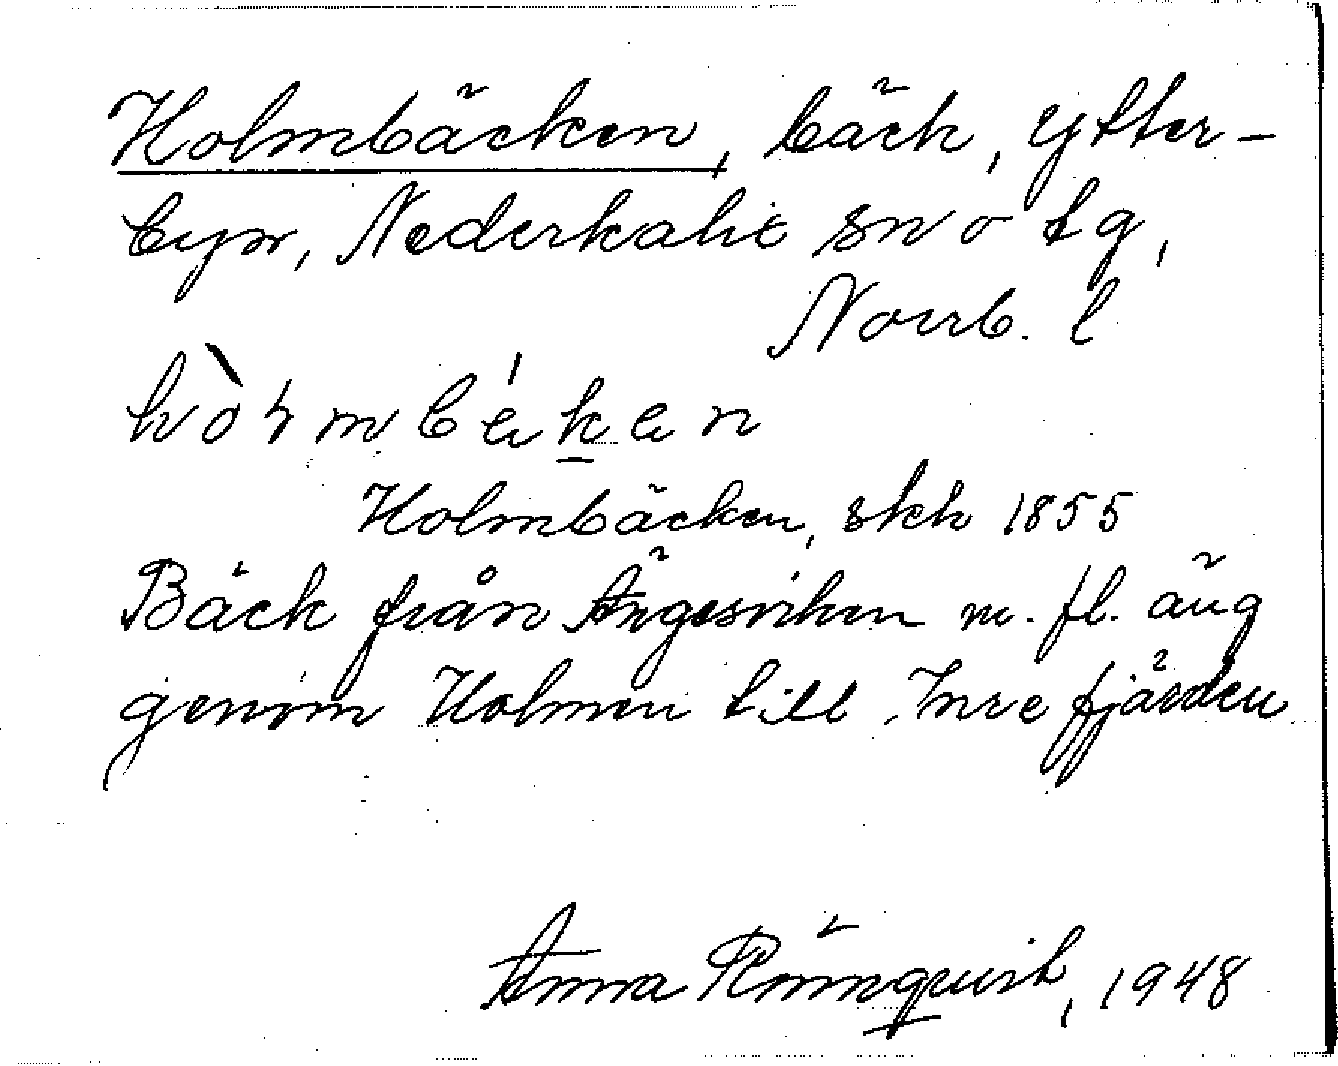 Holmbäcken, bäck, Ytter-
byn, Nederkalix sn o tg,
Norrb. l
Holmbäcken, skk 1855
Bäck från Ängesviken m. fl. äng
genom Holmen till Inre fjärden
Anna Rönnqvist, 1948